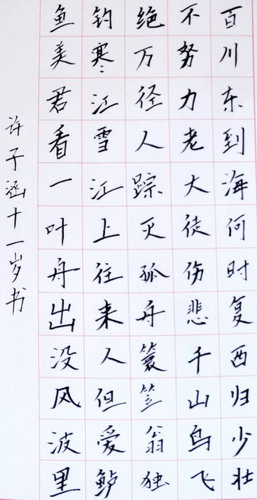 百川东到海何时复西归少壮
不努力老大徒伤悲千山鸟飞
绝万径人踪灭孤舟蓑笠翁独
钓寒江雪江上往来人但爱鲈
鱼美君看一叶舟出没风波里
许子涵十一岁书